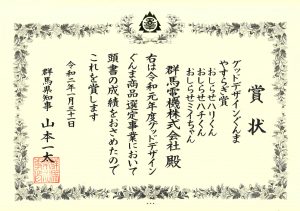 賞状
グッドデザインぐんま
やすらぎ賞
おしらせハリくん
おしらせハチくん
おしらせミイちゃん
群馬電機株式会社 殿
右は令和元年度グッドデザイン
ぐんま商品選定事業において
頭書の成績をおさめたので
これを賞します
令和二年一月三十一日
群馬県知事 山本一太